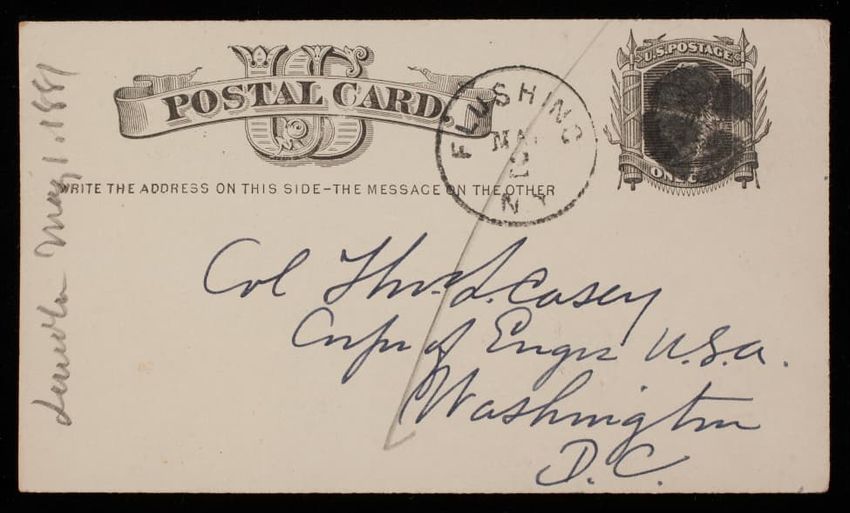 US
POSTAL CARD
WRITE THE ADDRESS ON THIS SIDE–THE MESSAGE ON THE OTHER
FLUSHING
MA
N.Y.
U.S. POSTAGE
ONE CENT
Col Thos. L. Casey
Corps of Engrs U.S.A.
Washington
D.C.
May 1. 1881